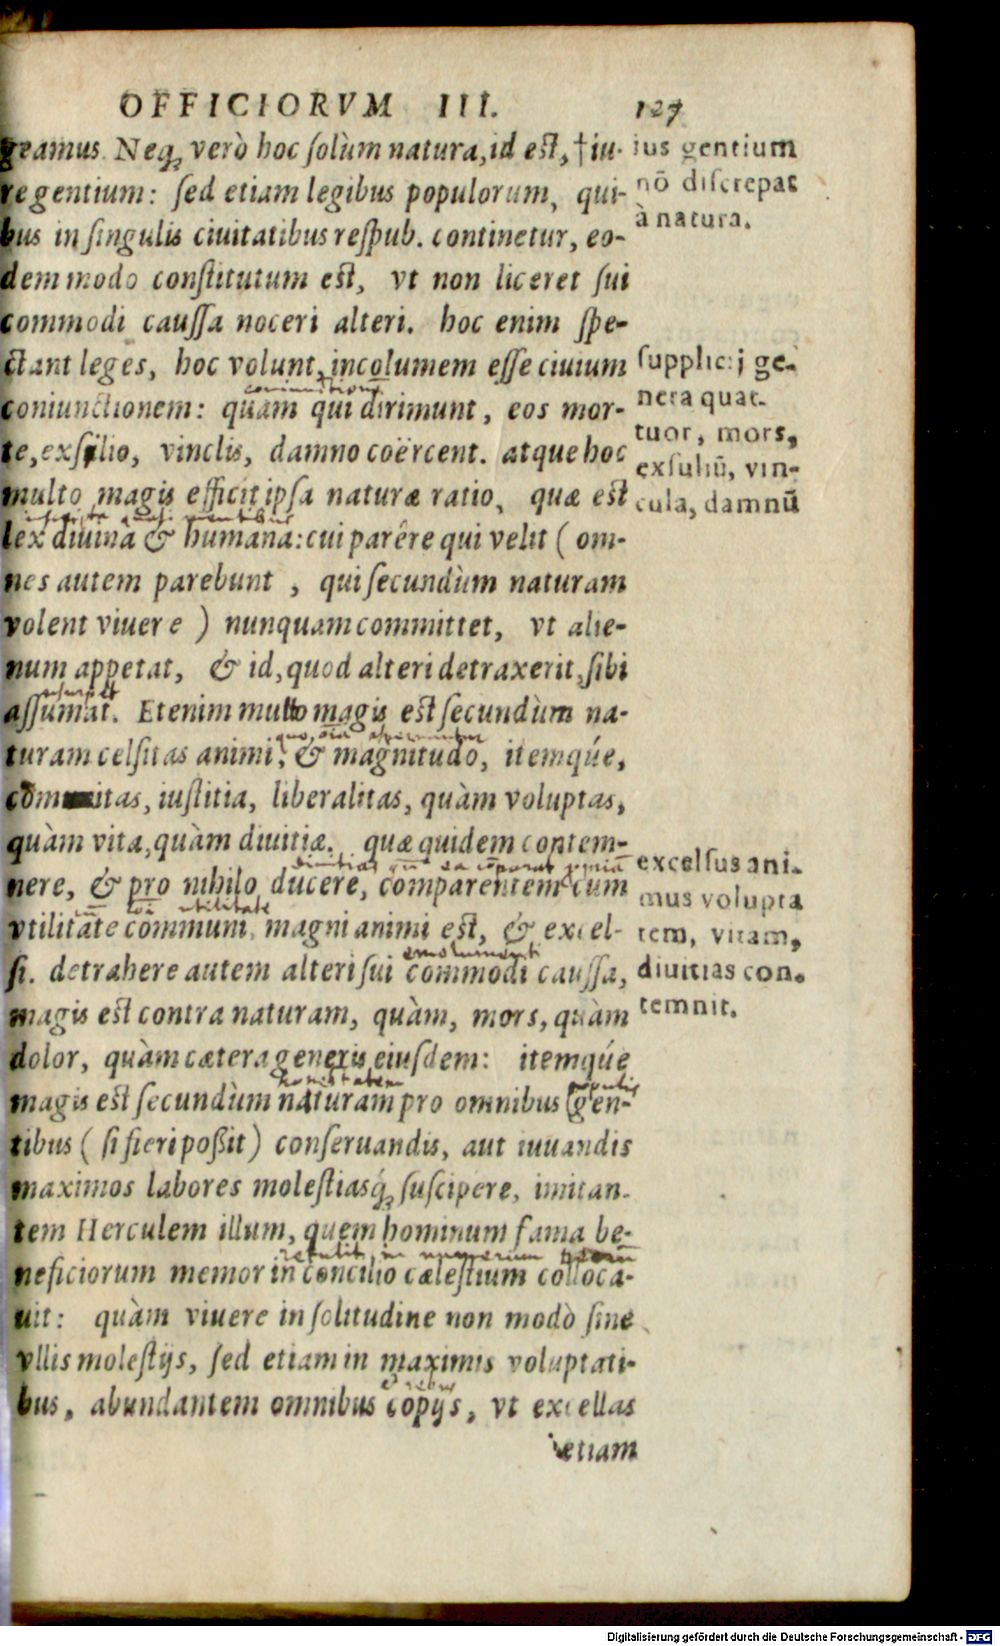 OFFICIORVM III. 127
geamus. Neq; verò hoc ſolùm natura, id est, †iu-
re gentium: ſed etiam legibus populorum, qui-
bus in ſingulis ciuitatibus reſpub. continetur, eo-
dem modo conſtitutum est, vt non liceret ſui
commodi cauſſa noceri alteri. hoc enim ſpe-
ctant leges, hoc volunt, incolumem eſſe ciuium
coniunctionem: quam qui dirimunt, eos mor-
te, exſilio, vinclis, damno coërcent. atque hoc
multo magis efficit ipſa naturæ ratio, quæ est
lex diuina & humana: cui parêre qui velit (om-
nes autem parebunt, qui ſecundùm naturam
volent viuere) nunquam committet, vt alie-
num appetat, & id, quod alteri detraxerit, ſibi
aſſumat. Etenim multo magis est ſecundùm na-
turam celſitas animi, & magnitudo, itemqúe,
comitas, iuſtitia, liberalitas, quàm voluptas,
quàm vita, quàm diuitiæ. quæ quidem contem-
nere, & pro nihilo ducere, comparentem cum
vtilitate communi, magni animi est, & excel-
ſi. detrahere autem alteri ſui commodi cauſſa,
emolumenti
magis est contra naturam, quàm, mors, quàm
dolor, quàm cætera generis eiuſdem: itemqúe
magis est ſecundùm naturam pro omnibus gen-
populis
tibus (ſi fieri poßit) conſeruandis, aut iuuandis
maximos labores moleſtiasq́; ſuſcipere, imitan-
tem Herculem illum, quem hominum fama be-
neficiorum memor in concilio cæleſtium colloca-
uit: quàm viuere in ſolitudine non modò ſine
vllis moleſtijs, ſed etiam in maximis voluptati-
bus, abundantem omnibus copijs, vt excellas
etiam
ius gentium
nō diſcrepat
à natura.
ſupplicij ge-
nera quat-
tuor, mors,
exſuliū, vin-
cula, damnū
excelſus ani-
mus volupta
tem, vitam,
diuitias con-
temnit.
Digitalisierung gefördert durch die Deutsche Forschungsgemeinschaft - DFG